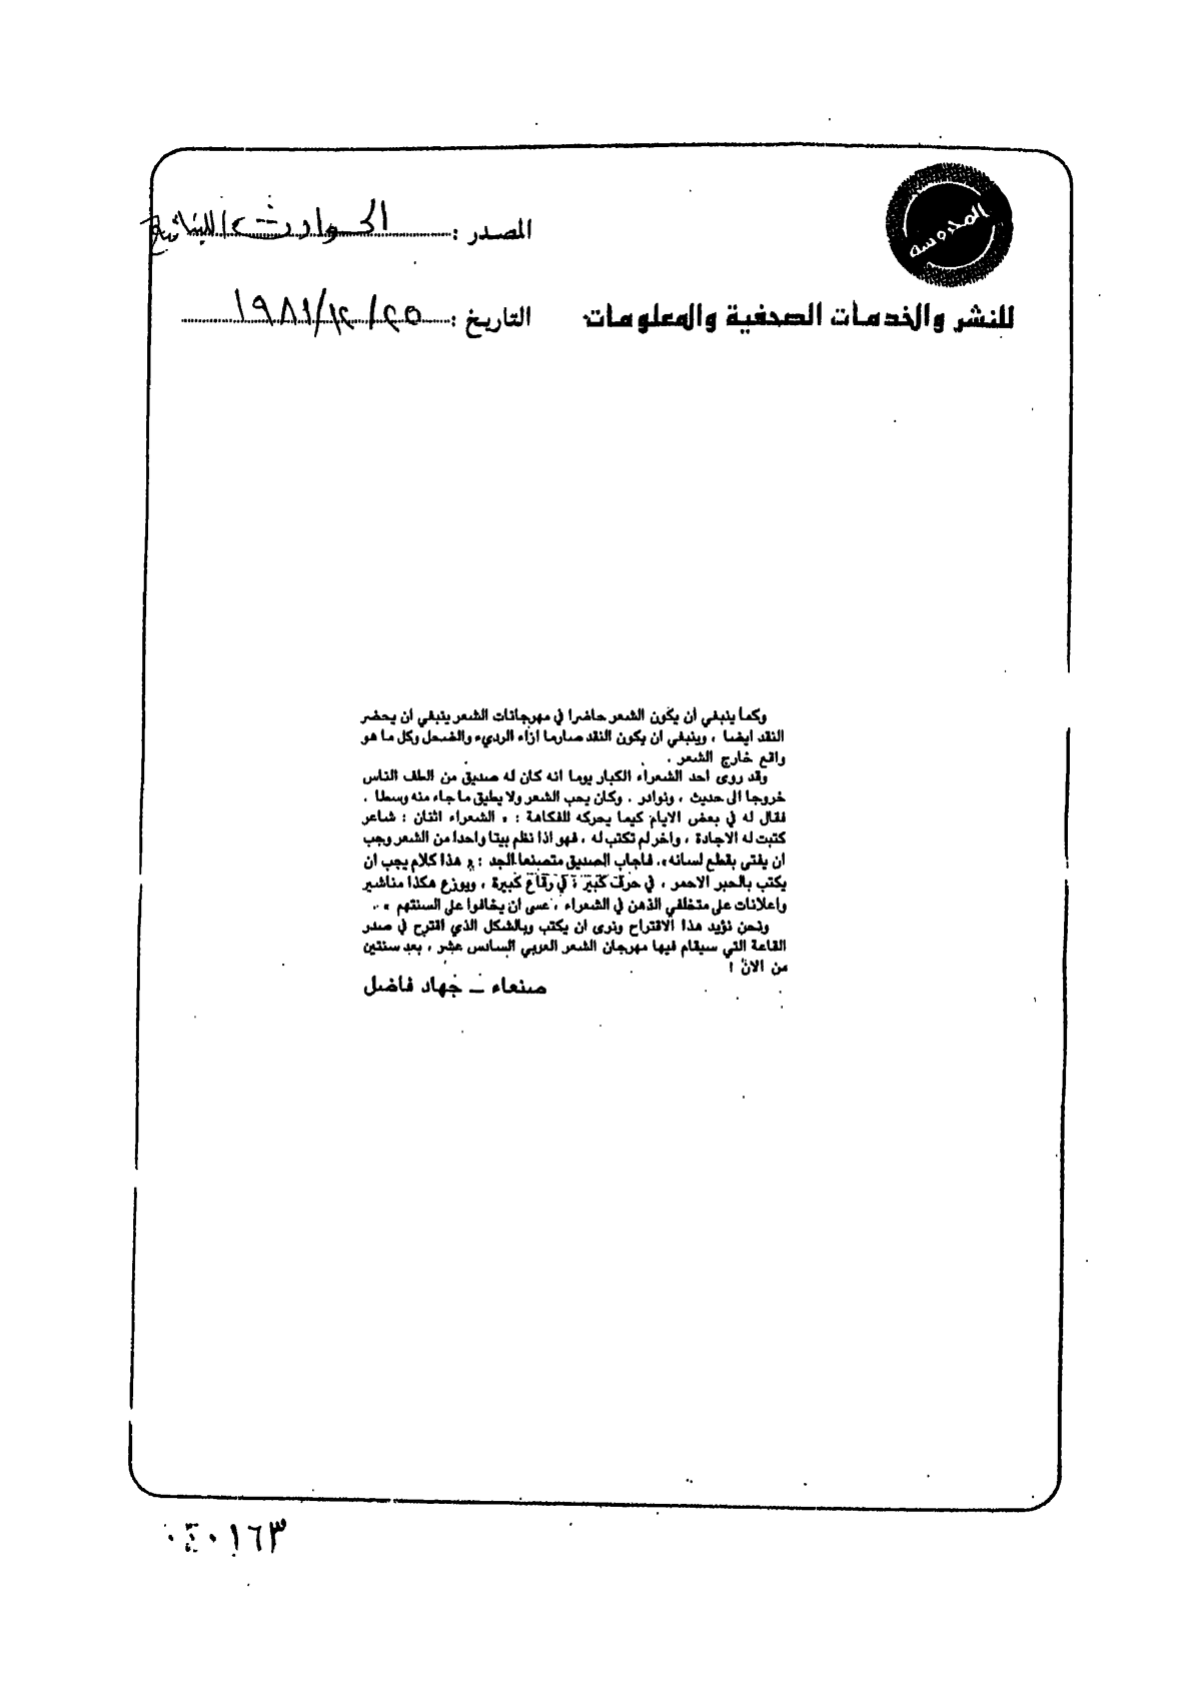 المحروسه
المصدر : الحوادث اللبنانية
للنشر والخدمات الصحفية والمعلومات
التاريخ : ٢٥/١٢/١٩٨١
وكما ينبغي أن يكون الشعر حاضرا في مهرجانات الشعر ينبغي ان يحضر
النقد ايضا ، وينبغي ان يكون النقد صارما ازاء الرديء والضحل وكل ما هو
واقع خارج الشعر .
وقد روى احد الشعراء الكبار يوما انه كان له صديق من الطف الناس
خروجا الى حديث ، ونوادر . وكان يحب الشعر ولا يطيق ما جاء منه وسطا .
فقال له في بعض الايام كيما يحركه للفكاهة : « الشعراء اثنان : شاعر
كتبت له الاجادة ، واخر لم تكتب له ، فهو اذا نظم بيتا واحدا من الشعر وجب
ان يفتى بقطع لسانه». فاجاب الصديق متصنعا الجد : « هذا كلام يجب ان
يكتب بالحبر الاحمر ، في حرف كبير ، في رقاع كبيرة ، ويوزع هكذا مناشير
واعلانات على متخلفي الذهن في الشعراء ، عسى ان يخافوا على السنتهم » .
ونحن نؤيد هذا الاقتراح ونرى ان يكتب وبالشكل الذي اقترح في صدر
القاعة التي سيقام فيها مهرجان الشعر العربي السادس عشر ، بعد سنتين
من الآن !
صنعاء ــ جهاد فاضل
٠٤٠١٦٣